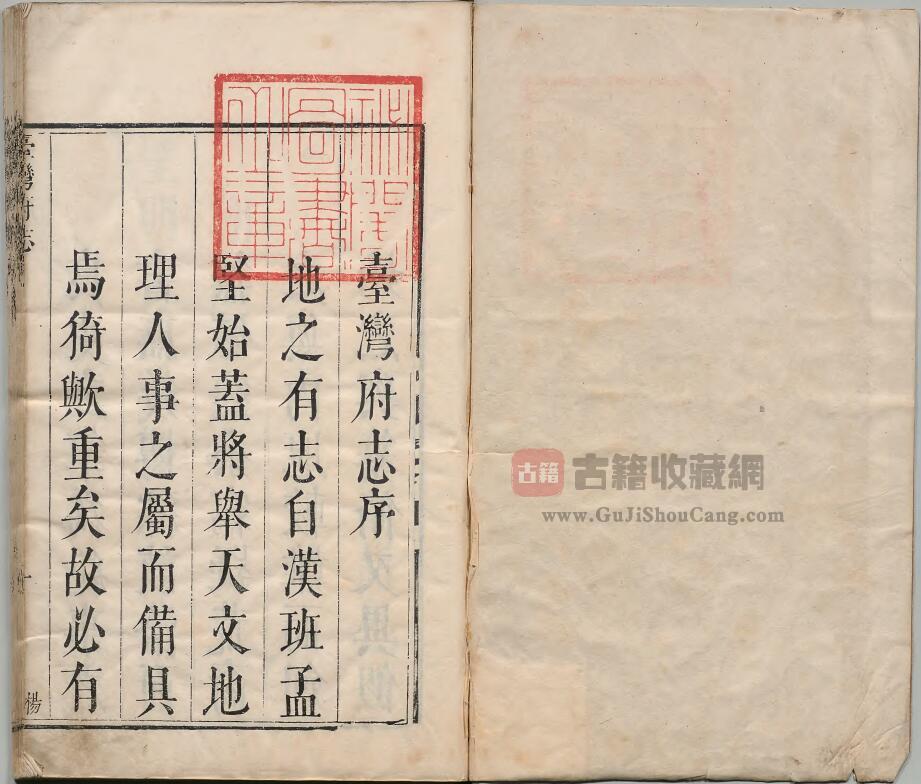 臺灣府志序
地之有志自漢班孟
堅始蓋將舉天文地
理人事之屬而備具
焉猗歟重矣故必有
臺灣府志
楊
秘閣
圖書
之章
古籍
古籍收藏網
www.GuJiShouCang.com